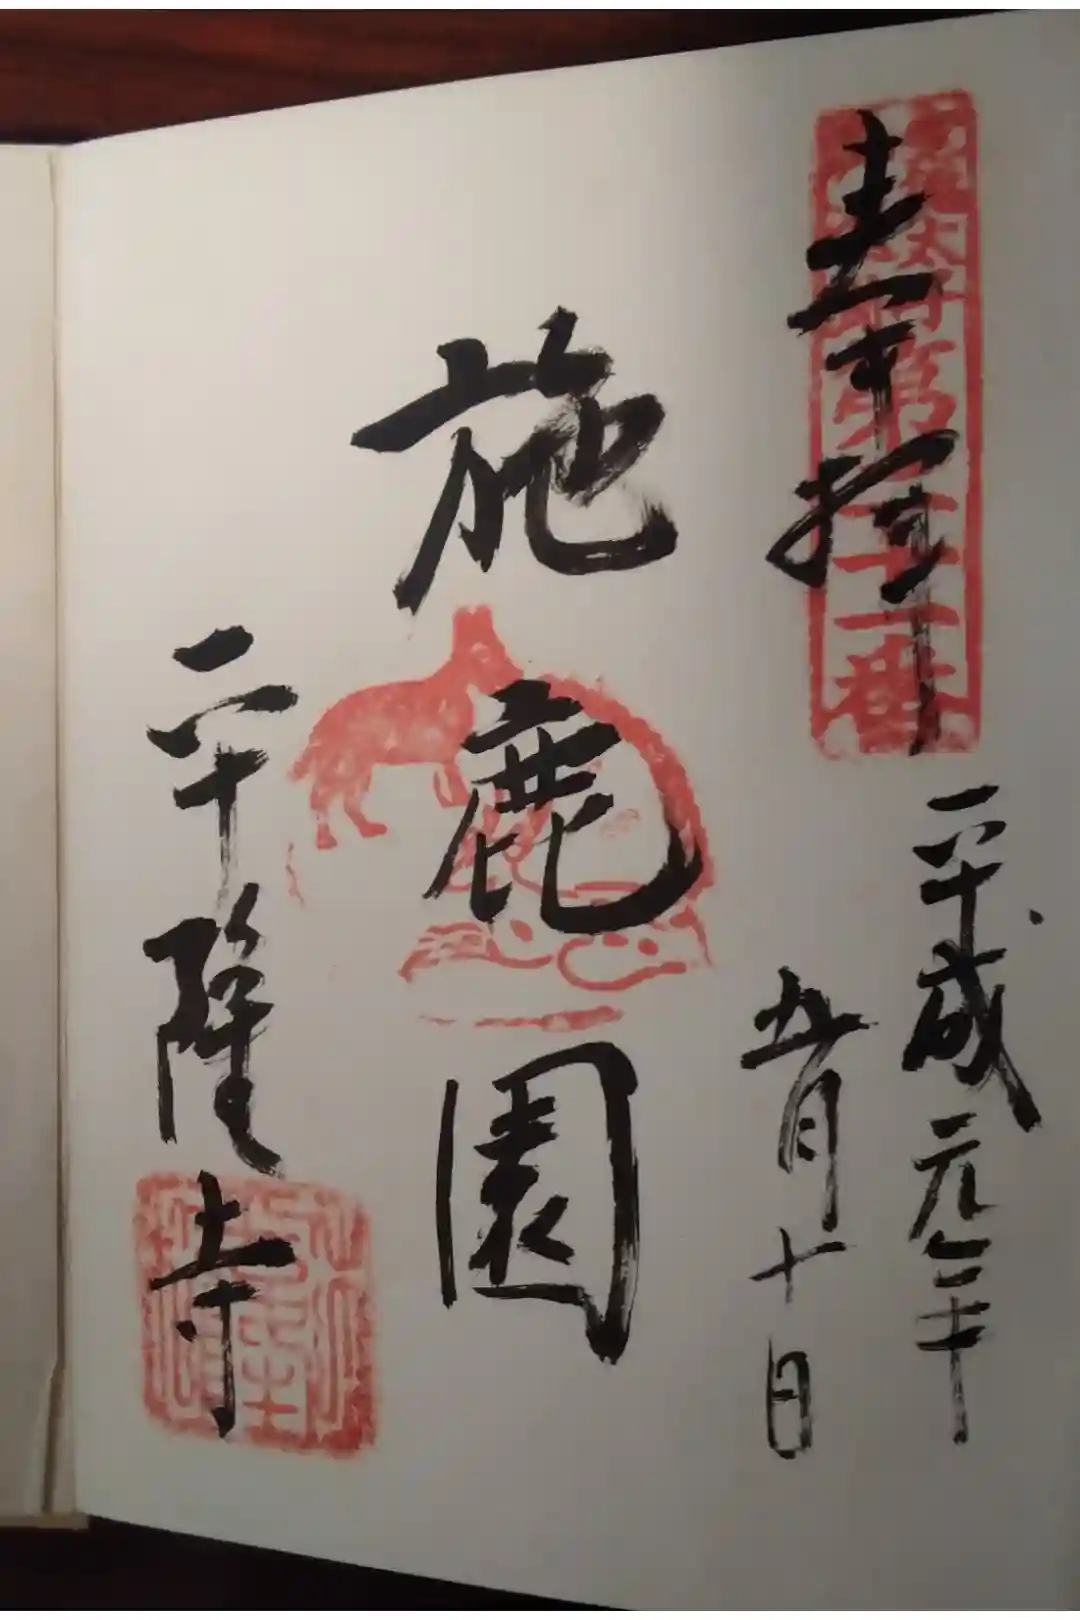 奉拝
平成元年
五月十日
施鹿園
平隆寺